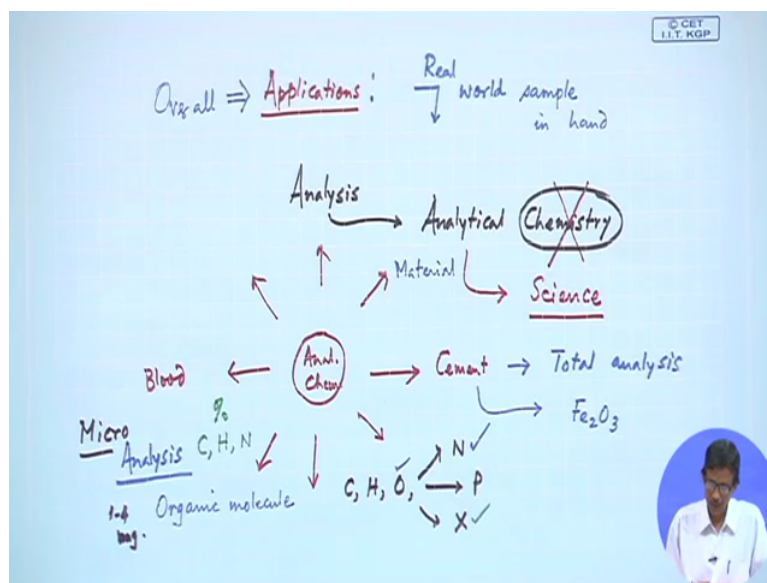 © CET
I.I.T. KGP
Overall ⇒ Applications :
Real
world sample
in hand
Analysis
Analytical Chemistry
Material
Science
Anal.
Chem
Blood
Cement → Total analysis
Fe₂O₃
%
Micro
Analysis C, H, N
C, H, O, N ✓
P
X ✓
1-4 Organic molecule
mg.